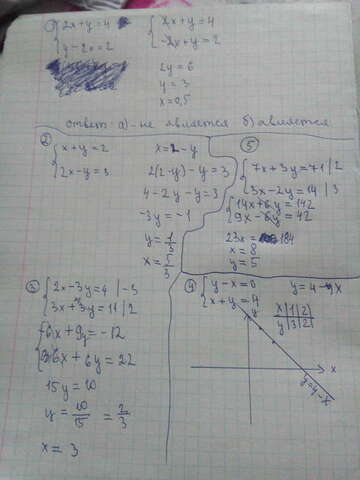 1) { 2x+y=4
y-2x=2
{ 2x+y=4
-2x+y=2
2y=6
y=3
x=0,5
ответ: а)-не является б)является
2) { x+y=2
2x-y=3
x=2-y
2(2-y)-y=3
4-2y-y=3
-3y=-1
y=1/3
x=5/3
5
{ 7x+3y=71 | 2
3x-2y=14 | 3
{ 14x+6y=142
9x-6y=42
23x=184
x=8
y=5
3) { 2x-3y=4 | -3
3x+2y=11 | 2
{ -6x+9y=-12
6x+6y=22
15y=10
y=10/15=2/3
x=3
4) { y-x=0
x+y=4
y=4-x
x|1|2|
y|3|2|
x
y=4-x